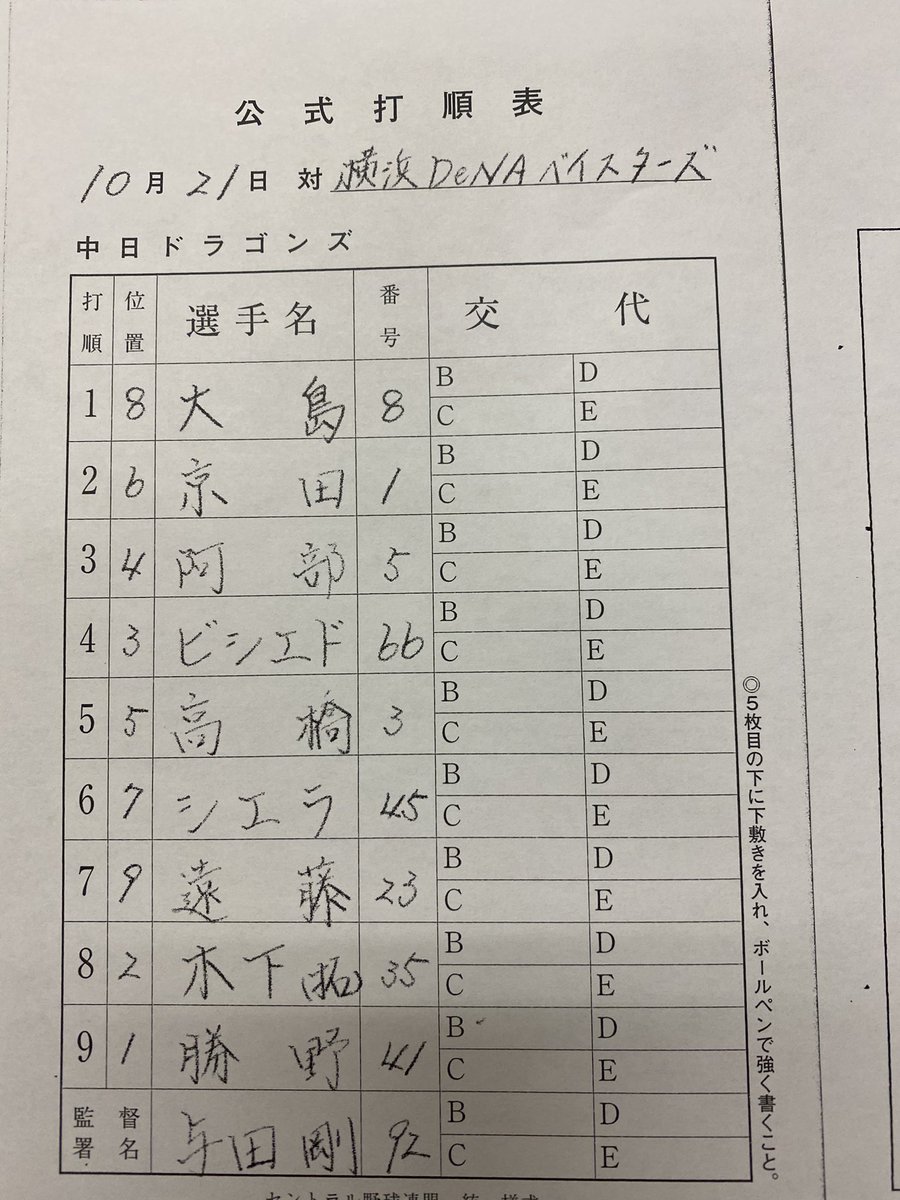 公式打順表
10月21日 対 横浜DeNAベイスターズ
中日ドラゴンズ
打順 位置 選手名 番号 交代
1 8 大島 8 B D C E
2 6 京田 1 B D C E
3 4 阿部 5 B D C E
4 3 ビシエド 66 B D C E
5 5 高橋 3 B D C E
6 7 シエラ 45 B D C E
7 9 遠藤 23 B D C E
8 2 木下(拓) 35 B D C E
9 1 勝野 41 B D C E
監督署名 与田剛 92 B D C E
◎5枚目の下に下敷きを入れ、ボールペンで強く書くこと。
セントラル野球連盟 統一様式